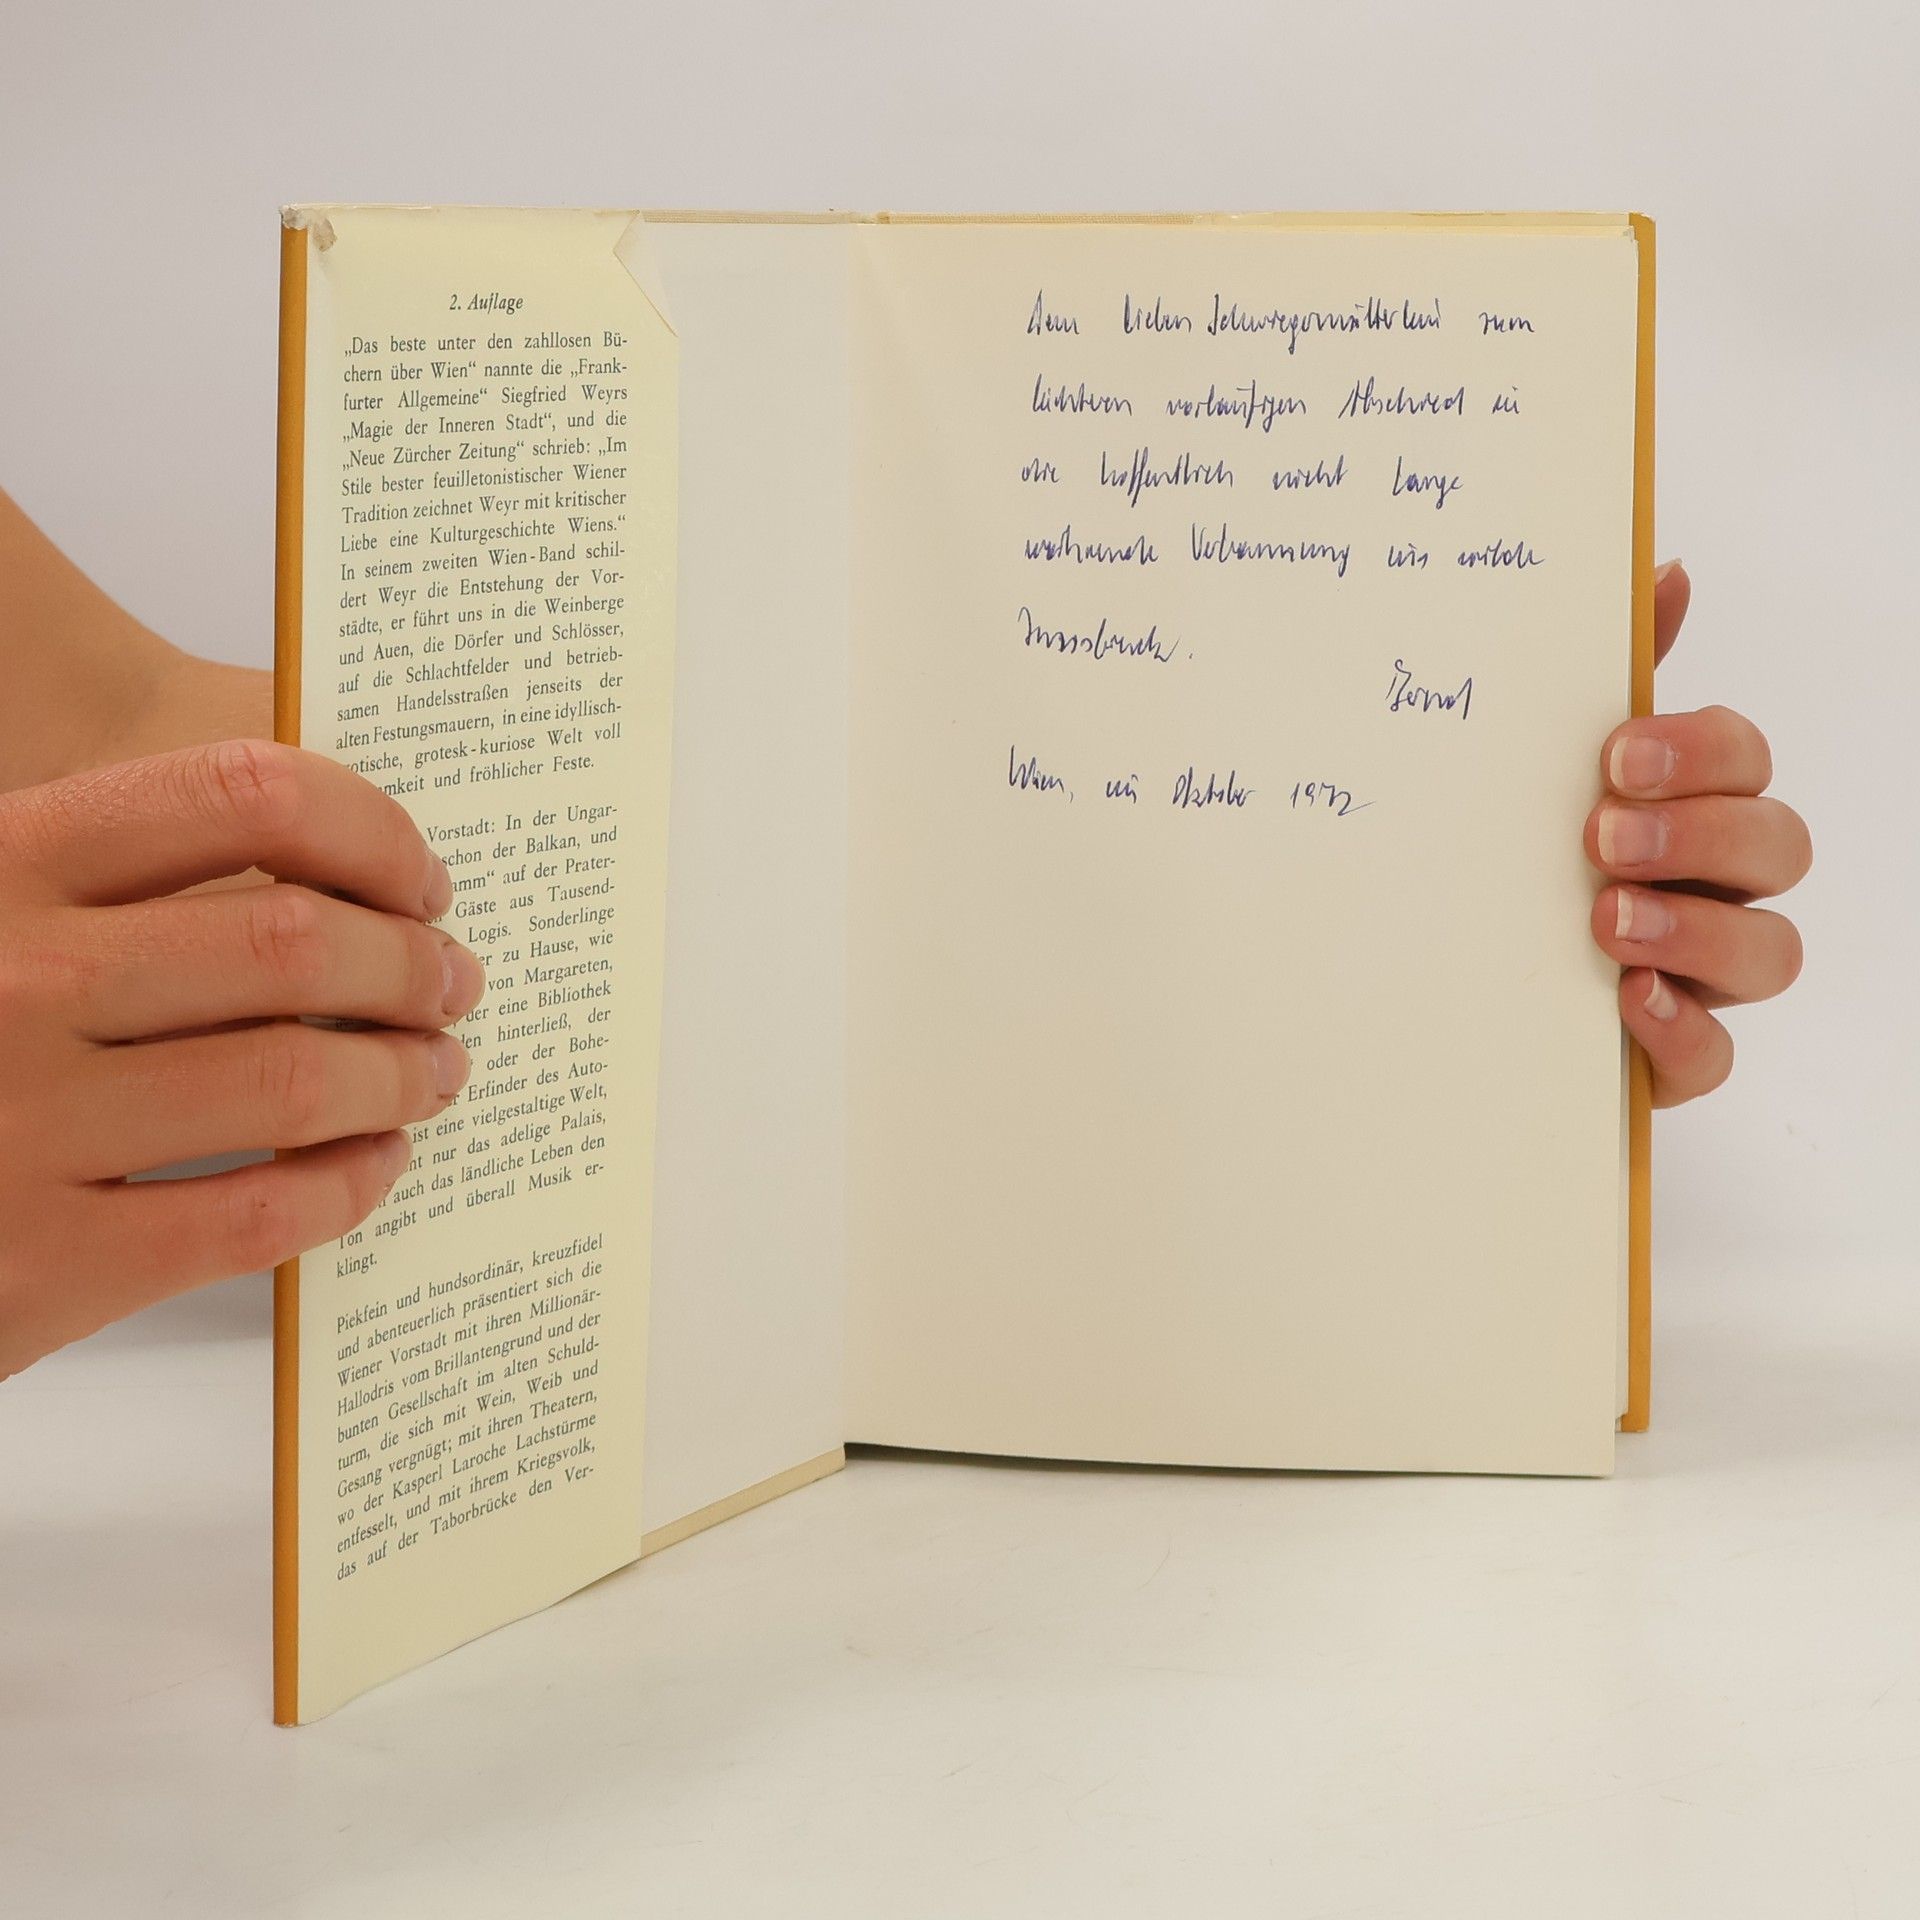 2. Auflage
„Das beste unter den zahllosen Bü-
chern über Wien“ nannte die „Frank-
furter Allgemeine“ Siegfried Weyrs
„Magie der Inneren Stadt“, und die
„Neue Zürcher Zeitung“ schrieb: „Im
Stile bester feuilletonistischer Wiener
Tradition zeichnet Weyr mit kritischer
Liebe eine Kulturgeschichte Wiens.“
In seinem zweiten Wien-Band schil-
dert Weyr die Entstehung der Vor-
städte, er führt uns in die Weinberge
und Auen, die Dörfer und Schlösser,
auf die Schlachtfelder und betrieb-
samen Handelsstraßen jenseits der
alten Festungsmauern, in eine idyllisch-
otische, grotesk-kuriose Welt voll
mkeit und fröhlicher Feste.
Vorstadt: In der Ungar-
schon der Balkan, und
amm“ auf der Prater-
Gäste aus Tausend-
Logis. Sonderlinge
er zu Hause, wie
von Margareten,
der eine Bibliothek
den hinterließ, der
oder der Bohe-
Erfinder des Auto-
ist eine vielgestaltige Welt,
nt nur das adelige Palais,
auch das ländliche Leben den
Ton angibt und überall Musik er-
klingt.
Piekfein und hundsordinär, kreuzfidel
und abenteuerlich präsentiert sich die
Wiener Vorstadt mit ihren Millionär-
Hallodris vom Brillantengrund und der
bunten Gesellschaft im alten Schuld-
turm, die sich mit Wein, Weib und
Gesang vergnügt; mit ihren Theatern,
wo der Kasperl Laroche Lachstürme
entfesselt, und mit ihrem Kriegsvolk,
das auf der Taborbrücke den Ver-
Dem lieben Schwiegermütterlein zum
leichteren vorläufigen Abschied in
die hoffentlich nicht lange
währende Verbannung ins wilde
Innsbruck.
Bernd
Wien, im Oktober 1972